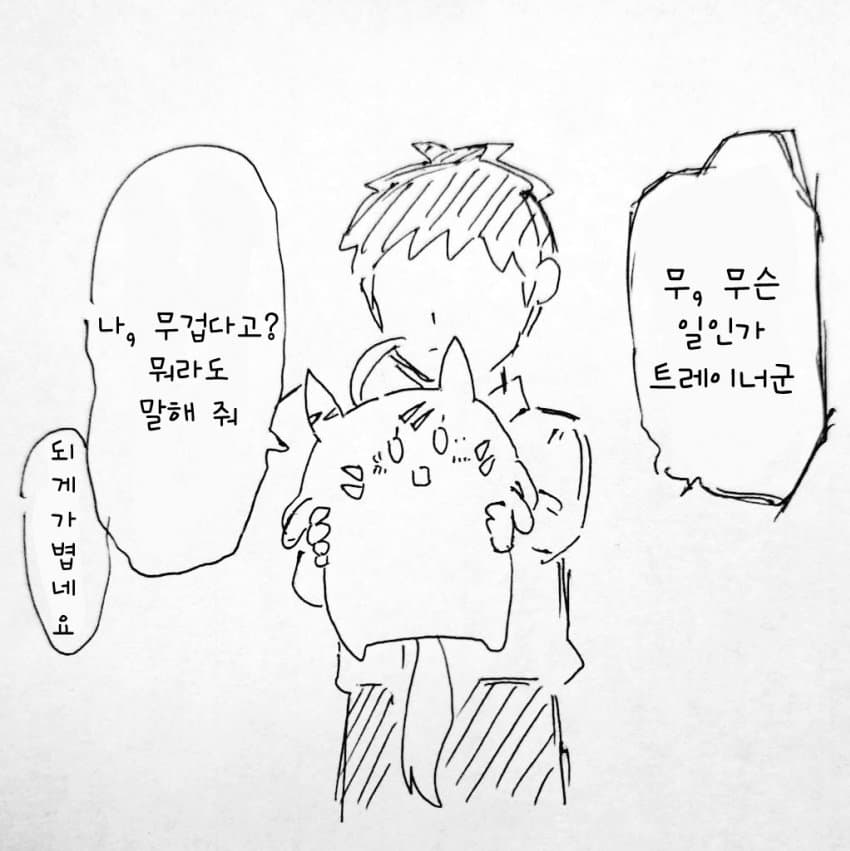 무, 무슨
일인가
트레이너군
나, 무겁다고?
뭐라도
말해 줘
되게가볍네요